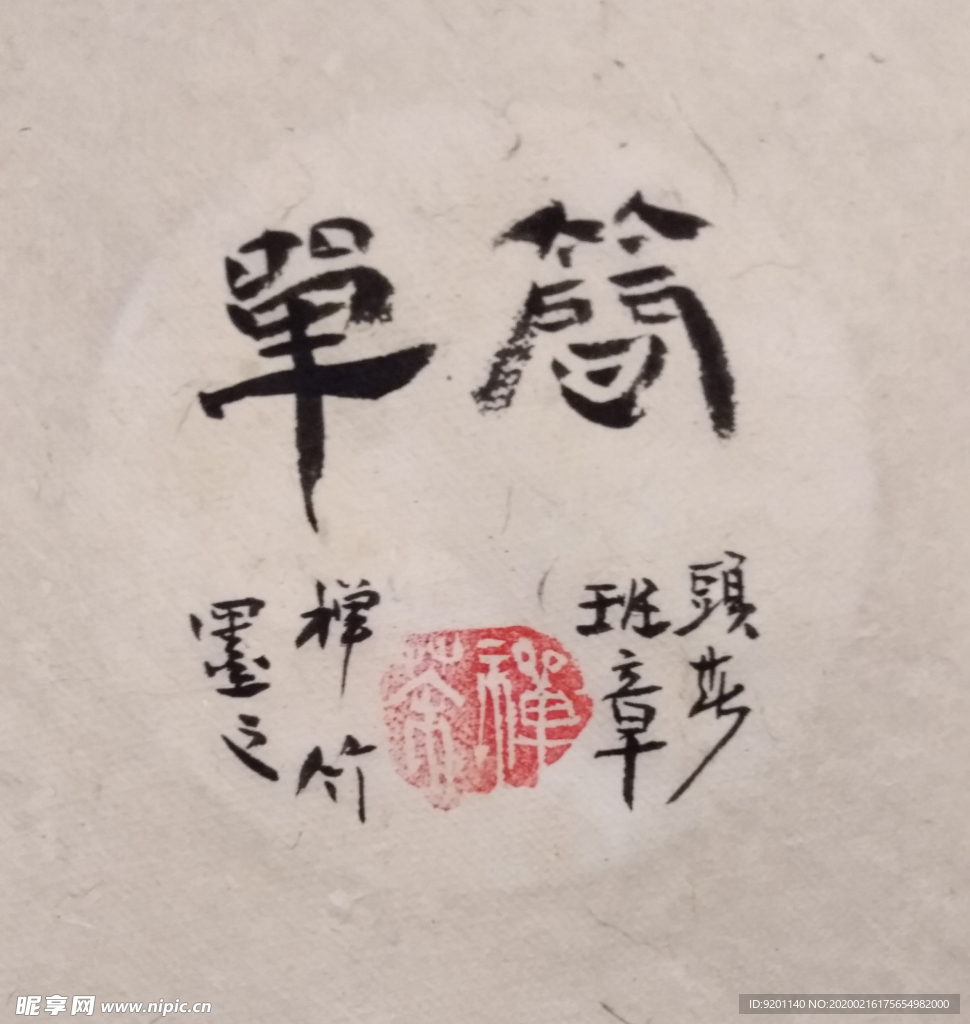 簡單
頭春
班章
禅茶
禅竹
墨之
昵享网 www.nipic.cn
ID:9201140 NO:20200216175654982000